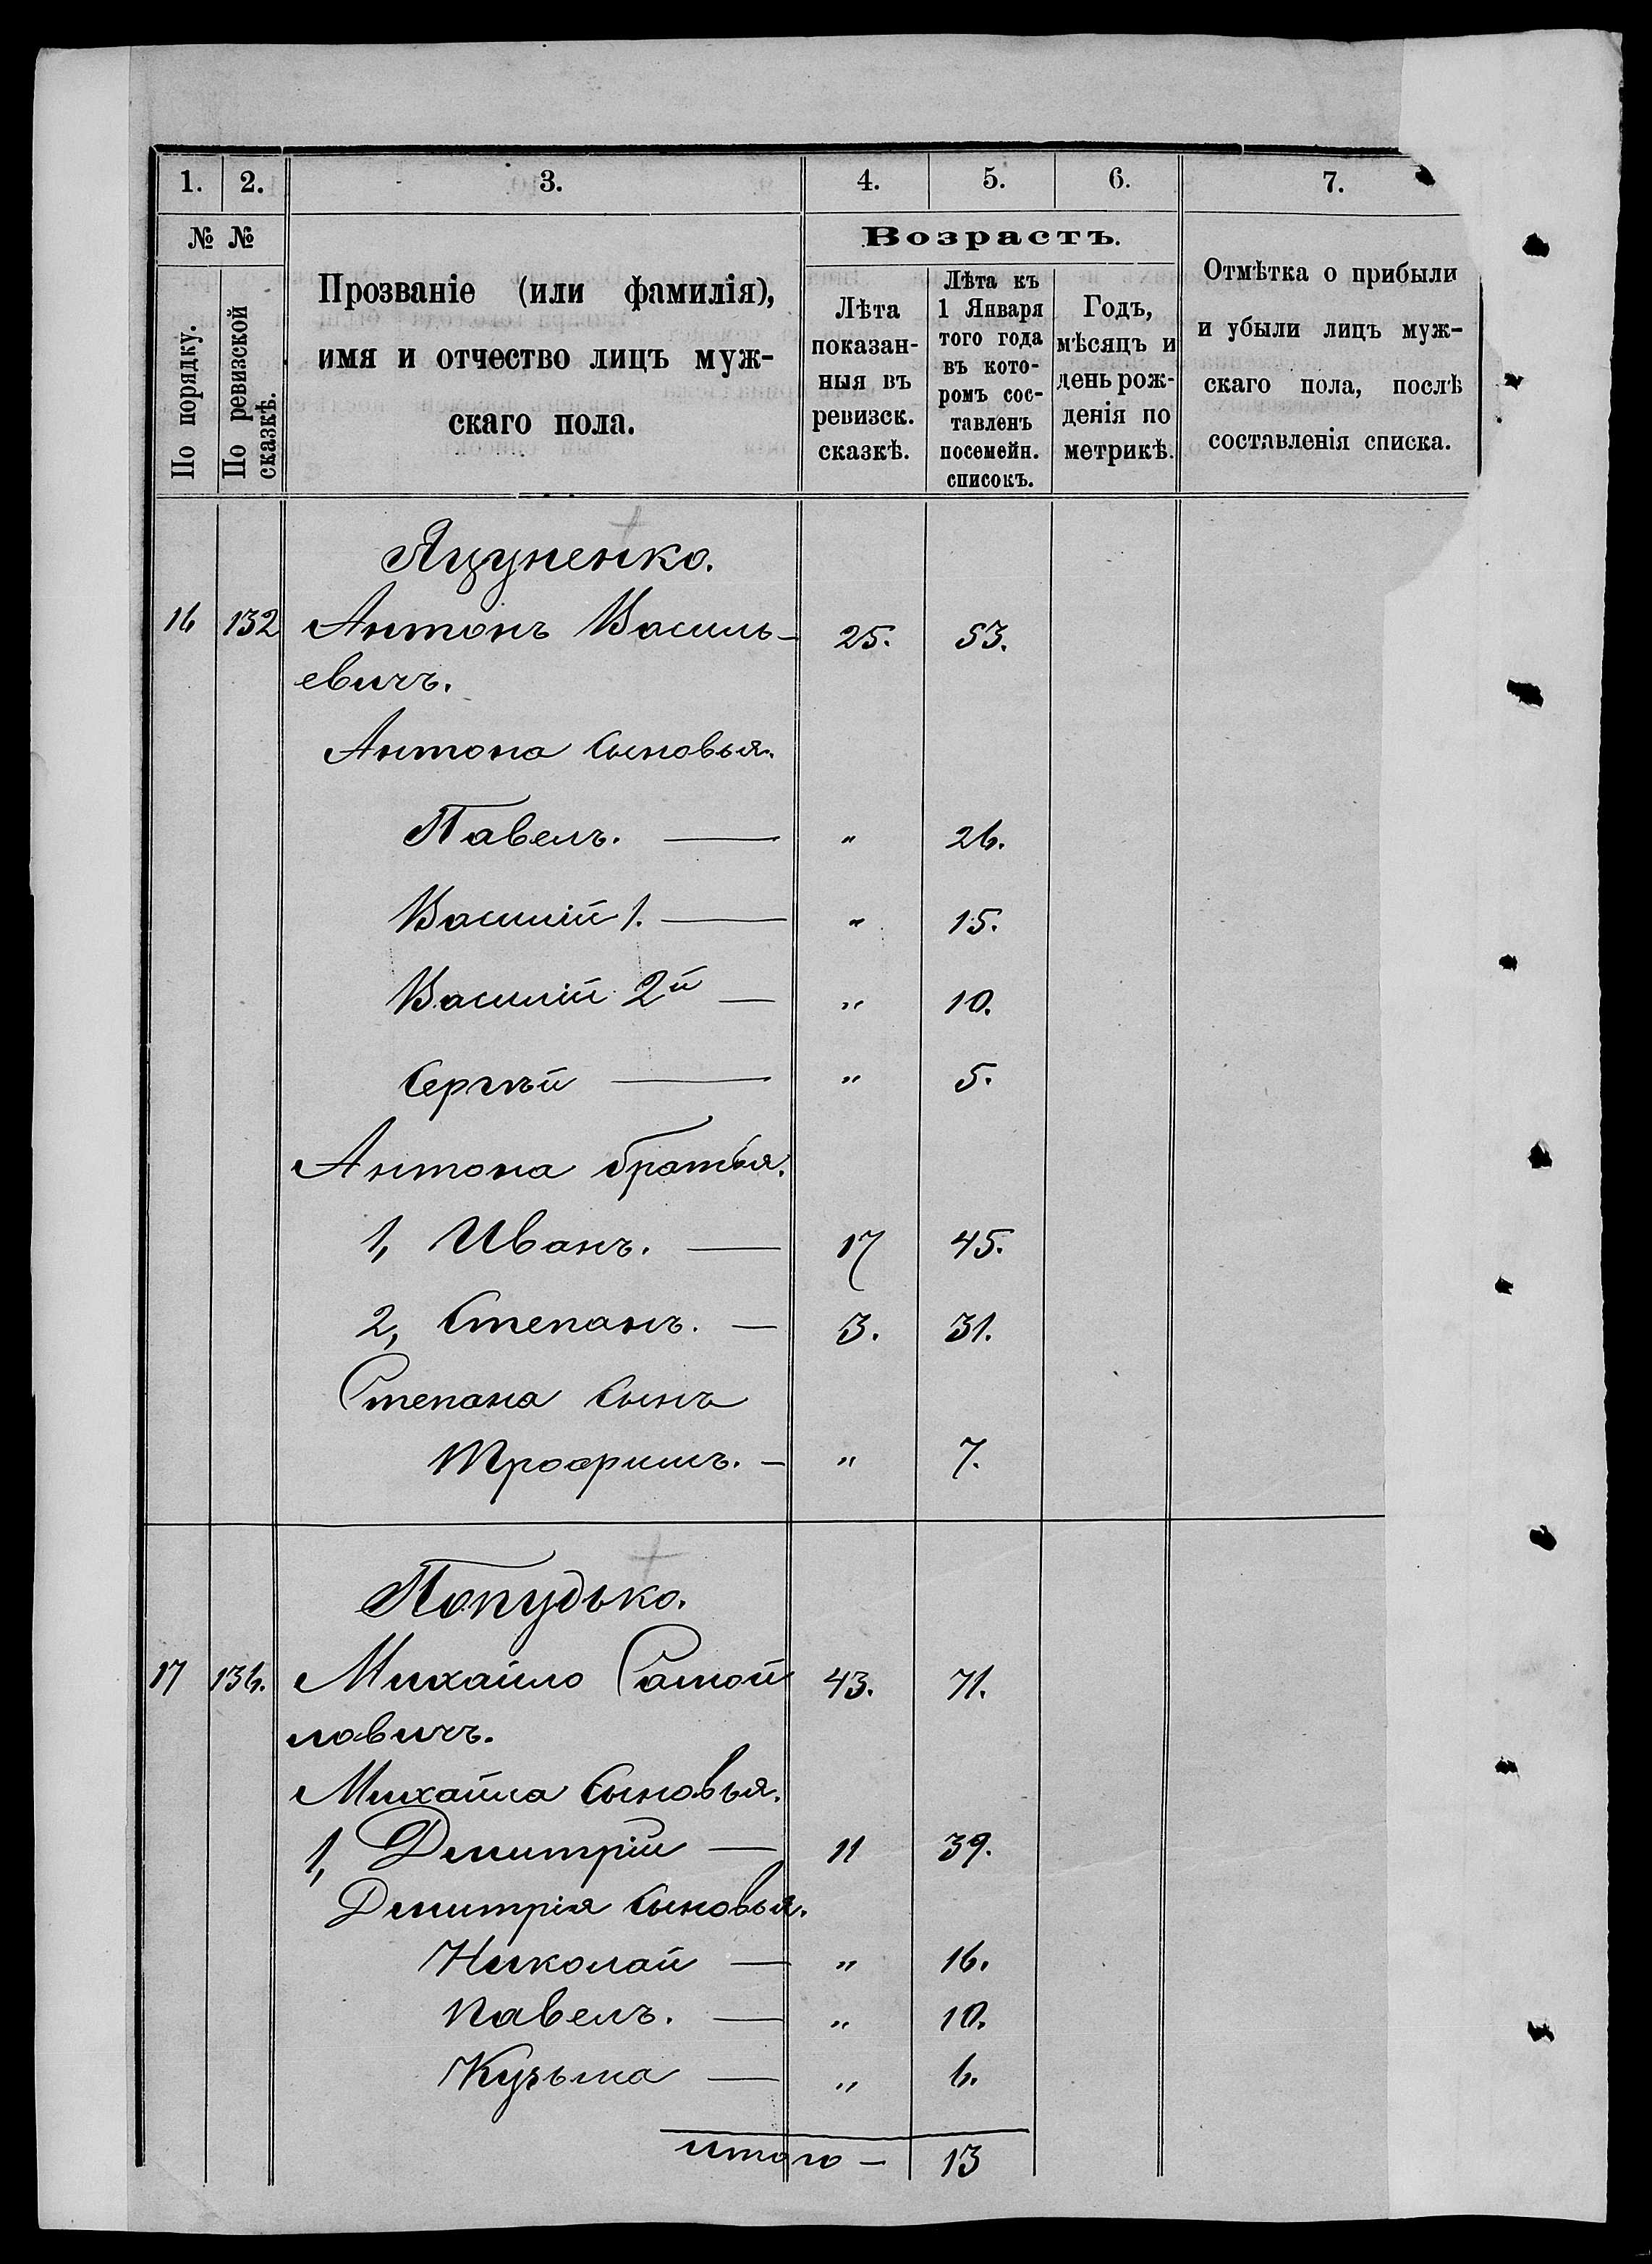 1. 2. 3. 4. 5. 6. 7.
№ №
По порядку.
По ревизской сказкѣ.
Прозваніе (или фамилія),
имя и отчество лицъ муж-
скаго пола.
Возрастъ.
Лѣта
показан-
ныя въ
ревизск.
сказкѣ.
Лѣта къ
1 Января
того года
въ кото-
ромъ сос-
тавленъ
посемейн.
списокъ.
Годъ,
мѣсяцъ и
день рож-
денія по
метрикѣ.
Отмѣтка о прибыли
и убыли лицъ муж-
скаго пола, послѣ
составленія списка.
Яцуненко.
16 132 Антонъ Василь- 25. 53.
евичъ.
Антона сыновья.
Павелъ. — " 26.
Василій 1. — " 15.
Василій 2й — " 10.
Сергѣй — " 5.
Антона братья.
1, Иванъ. — 17 45.
2, Степанъ. — 3. 31.
Степана сынъ
Трофимъ. — " 7.
Попудько.
17 136. Михайло Самой 43. 71.
ловичъ.
Михайла сыновья.
1, Дмитрій — 11 39.
Дмитрія сыновья.
Николай — " 16.
Павелъ. — " 10.
Кузьма — " 6.
итого — 13